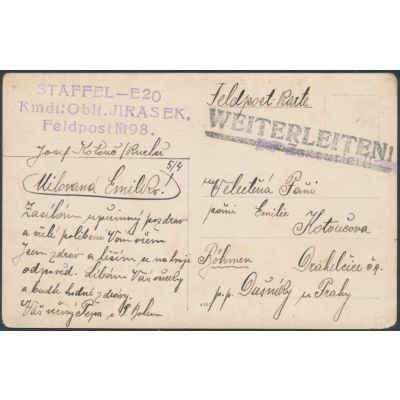 STAFFEL-E20
Kmdt: Oblt. JIRASEK,
Feldpost № 98.
Feldpost-Karte
WEITERLEITEN!
Zensuriert
Josef Kotouč
5/4
Milovaná Emilko!
Zasílám upřímný pozdrav
a vřelé políbení Vám všem
Jsem zdráv a těším se na
odpověd. Líbám Vás všecky
a buďte hodně zdrávy.
Váš věrný Pepa s P. Bohem
Velectěná Paní
paní Emilie
Kotoučova
Böhmen
Drahelčice čp.
p.p. Dušníky u Prahy